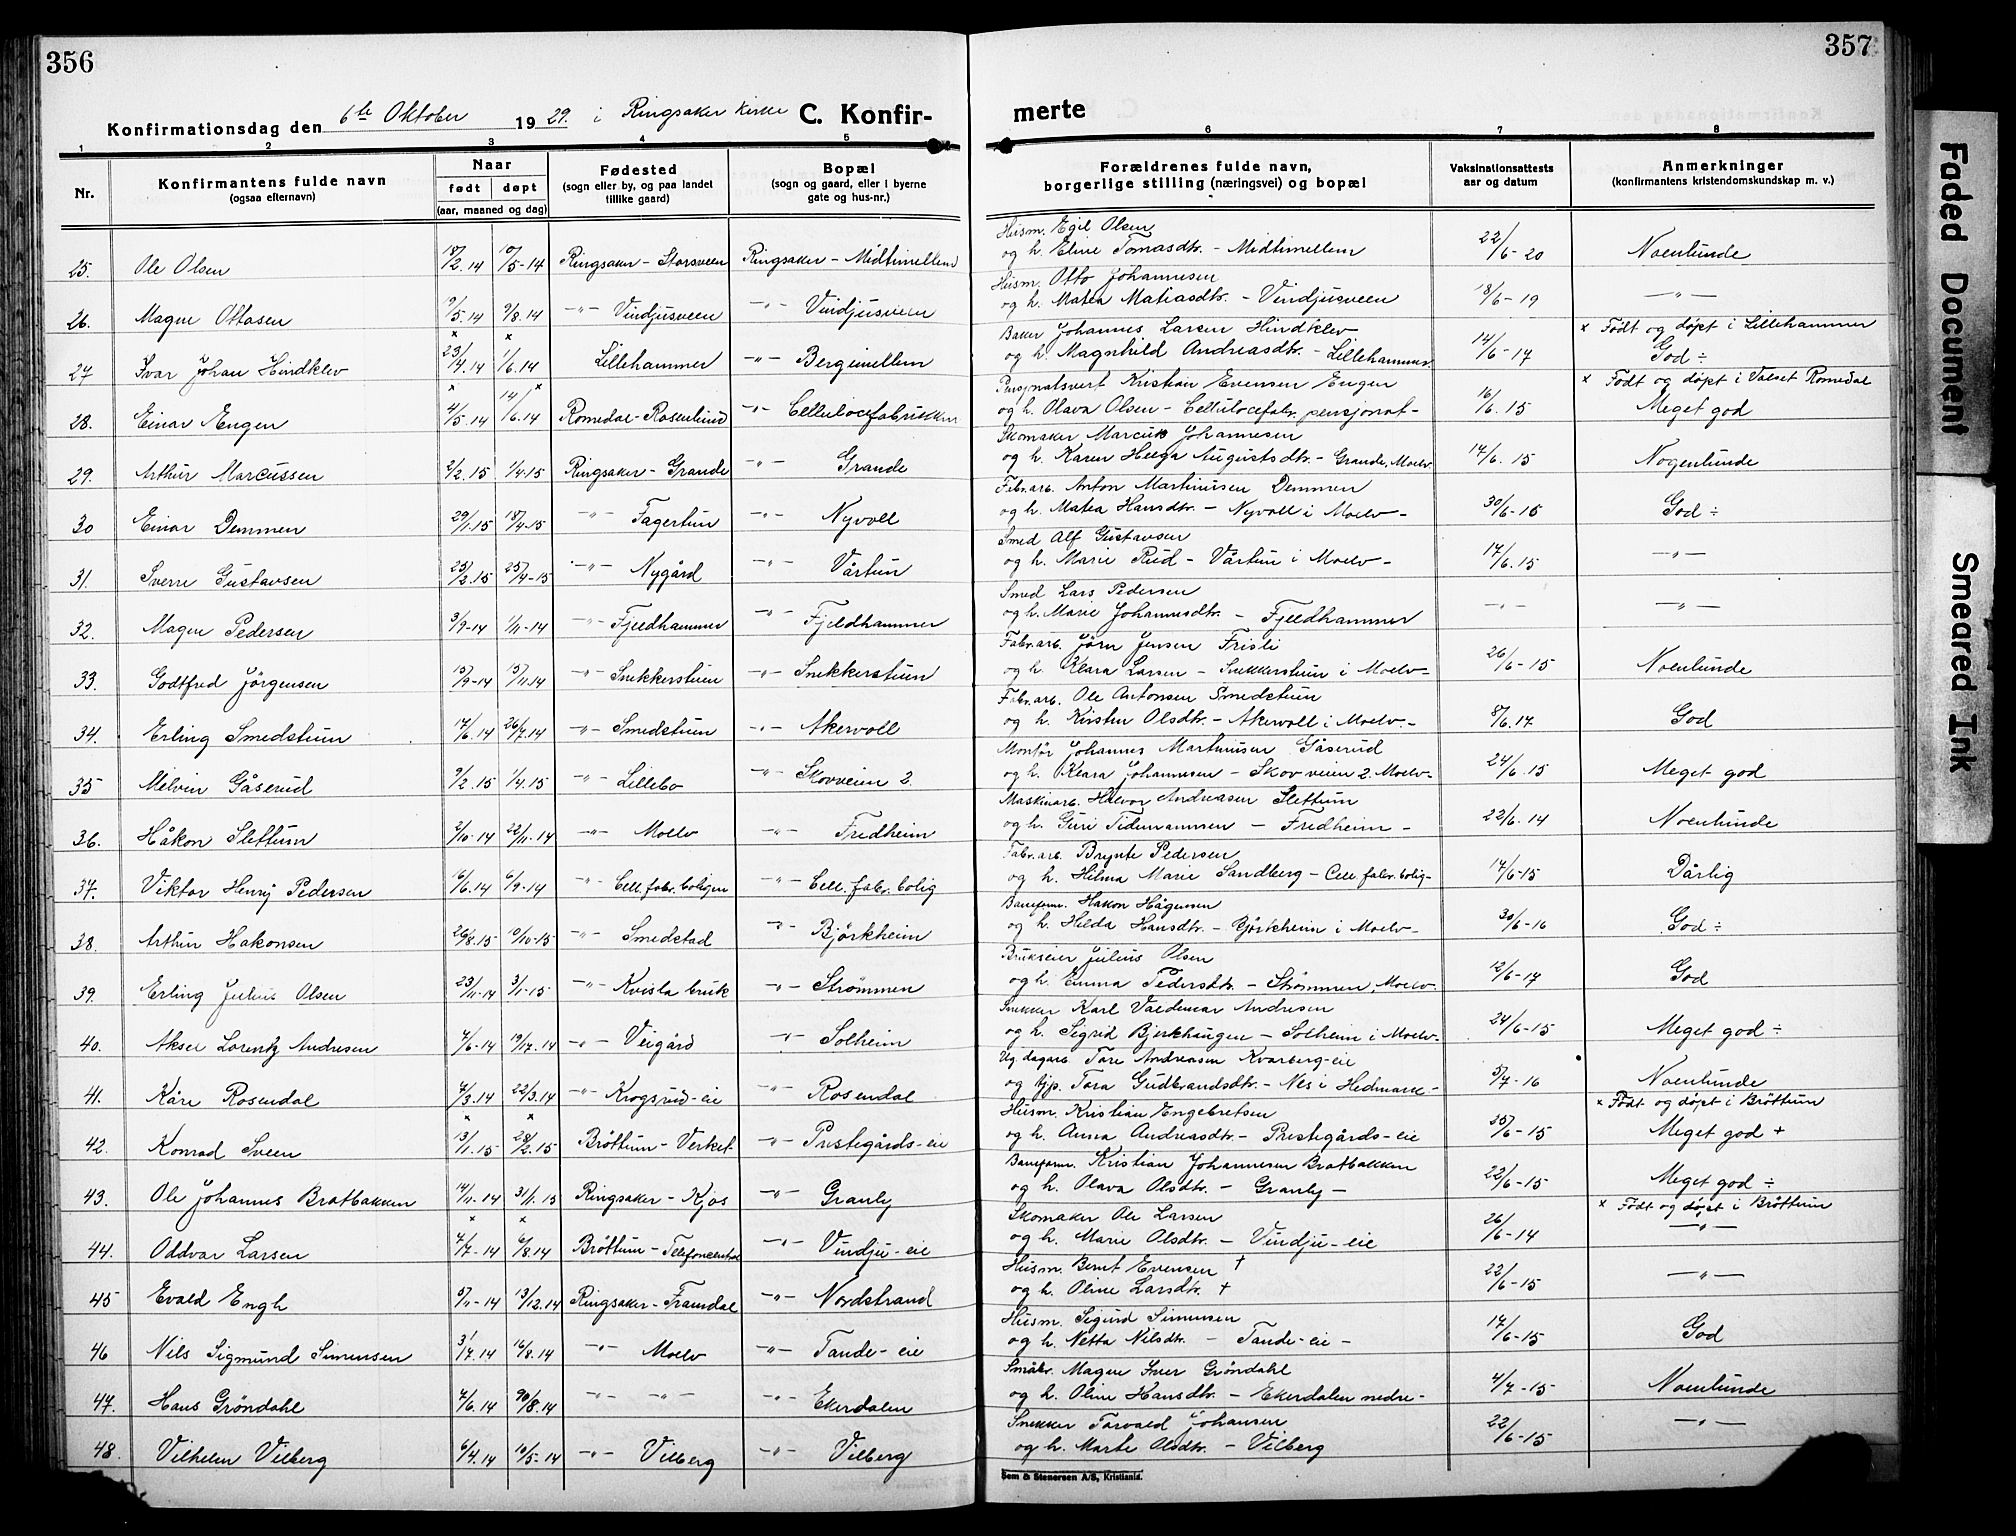 356
357
Konfirmationsdag den 6te Oktober 1929. i Ringsaker kirke C. Konfir-
merte
1 2 3 4 5 6 7 8
Nr.
Konfirmantens fulde navn
(ogsaa efternavn)
Naar
født døpt
(aar, maaned og dag)
Fødested
(sogn eller by, og paa landet
tillike gaard)
Bopæl
(sogn og gaard, eller i byerne
gate og hus-nr.)
Forældrenes fulde navn,
borgerlige stilling (næringsvei) og bopæl
Vaksinationsattests
aar og datum
Anmerkninger
(konfirmantens kristendomskundskap m. v.)
Husm. Egil Olsen
25. Ole Olsen 18/2.14 10/5-14 Ringsaker - Storsveen Ringsaker - Midtimellem og h. Eline Tomasdtr. - Midtimellem 22/6-20 Noenlunde
Husm. Otto Johannesen
26. Magne Ottosen 9/5.14 9/8.14 -"- Vindjusveen -"- Vindjusveen og h. Matea Matiasdtr. - Vindjusveen 18/6-19 -"-
Baker Johannes Larsen Hindklev × Født og døpt i Lillehammer
27 Ivar Johan Hindklev 23/4.14 1/6.14 Lillehammer -"- Bergimellem og h. Magnhild Andreasdtr. - Lillehammer. 14/6-17 God ÷
Pensjonatsvert Kristian Evensen Engen × Født og døpt i Valset Romedal
28. Einar Engen 4/5.14 14/6.14 Romedal - Rosenlund -"- Cellulocefabrikken og h. Olava Olsen - Cellulocefabr. pensjonat - 16/6.15 Meget god
Skomaker Marcus Johannesen
29. Arthur Marcussen 2/2.15 1/4.15 Ringsaker - Grande -"- Grande og h. Karen Helga Augustsdtr. - Grande, Moelv. 14/6.15 Nogenlunde
Fabr.arb. Anton Martinusen Demmen
30 Einar Demmen 29/1.15 18/4-15 -"- Fagertun -"- Nyvoll og h. Matea Hansdtr. - Nyvoll i Moelv - 30/6-16 God ÷
Smed Alf Gustavsen
31. Sverre Gustavsen 23/2.15 25/4-15 -"- Nygård -"- Vårtun og h. Marie Rud - Vårtun i Moelv - 17/6.15 -"-
Smed Lars Pedersen
32. Magne Pedersen 3/9-14 1/11-14 -"- Fjeldhammer -"- Fjeldhammer og h. Marie Johannesdtr. - Fjeldhammer -"- -"-
Fabr.arb. Jörn Jensen Frisli
33. Godtfred Jörgensen 13/9-14 15/11.14 -"- Snekkerstuen -"- Snekkerstuen og h. Klara Larsen - Snekkerstuen i Moelv - 26/6-15 Noenlunde
Fabr.arb. Ole Antonsen Smedstuen
34. Erling Smedstuen 17/6.14 26/7.14 -"- Smedstuen -"- Akervoll og h. Kirsten Olsdtr. - Akervoll i Moelv. - 8/6.17 God
Montör Johannes Martinusen Gåserud
35 Melvin Gåserud 9/2.15 1/4.15 -"- Lillebo -"- Skovveien 2. og h. Klara Johannesen - Skovveien 2. Moelv - 24/6.15 Meget god
Maskinarb. Halvor Andreasen Slettum
36. Håkon Slettum 2/10-14 22/11-14 -"- Moelv -"- Fredheim og h. Guri Tidemannsen - Fredheim - 22/6.14 Noenlunde
Fabr.arb. Brynte Pedersen
37. Viktor Henry Pedersen 16/6.14 6/9-14 -"- Cell. fabr. boligen -"- Cell. fabr. bolig og h. Hilma Marie Sandberg - Cell fabr. bolig - 17/6-15 Dårlig
Baneform. Hakon Hågensen
38. Arthur Hakonsen 26/8.15 10/10-15 -"- Smedstad -"- Björkheim og h. Hilda Hansdtr. - Görkheim i Moelv - 30/6-16 God ÷
Brukseier Julius Olsen
39. Erling Julius Olsen 23/11-14 3/1-15 -"- Kvisla bruk -"- Strømmen og h. Emma Pedersdtr. - Strømmen, Moelv. 12/6-17 God
Snekker Karl Valdemar Andresen
40. Aksel Lorentz Andresen 7/6-14 19/17.14 -"- Veigård -"- Solheim og h. Sigrid Bjerkhaugen - Solheim i Moelv - 24/6-15 Meget god ÷
Ug. dagarb. Tore Andreasen Kvarberg-eie
41. Kåre Rosendal 7/3.14 22/3.14 -"- Krogsrud-eie -"- Rosendal og pjp. Tora Gudbrandsdtr. - Nes i Hedmark - 5/7-16 Noenlunde
Husm. Kristian Engebretsen × Født og døpt i Bröttum
42. Konrad Sveen 13/1.15 28/2.15 Bröttum - Verket -"- Prestegårds-eie og h. Anna Andreasdtr. - Prestegårds-eie 25/6-15 Meget god +
Baneform. Kristian Johannesen Bratbakken
43. Ole Johannes Bratbakken 14/11.14 31/1.15 Ringsaker - Kjos -"- Granly og h. Olava Olsdtr. - Granly - 22/6-15 Meget god ÷
Skomaker Ole Larsen × Født og døpt i Bröttum
44. Oddvar Larsen 4/7-14 6/8.14 Bröttum - Telefoncentral -"- Vindju-eie og h. Marie Olsdtr. - Vindju-eie 26/6-14 -"-
Husm. Bernt Evensen †
45 Evald Engh 5/11-14 13/12.14 Ringsaker - Framdal -"- Nordstrand og h. Oline Larsdtr. † 22/6-15 -"-
Husm. Sigurd Simensen
46 Nils Sigmund Simensen 31/7.14 16/8.14 -"- Moelv -"- Tande-eie og h. Netta Nilsdtr. - Tande-eie - 17/6-15 God
Småbr. Magne Iver Gröndahl
47. Hans Gröndahl 7/6.14 90/8.14 -"- -"- -"- Ekerdalen og h. Oline Hansdtr. - Ekerdalen nedre - 4/7-15 Noenlunde
Snekker Torvald Johansen
48. Vilhelm Vilberg 6/4.14 10/5-14 -"- Vilberg -"- Vilberg og h. Marte Olsdtr. - Vilberg 22/6-15 -"-
Sem & Stenersen A/S, Kristiania.
Faded Document
Smeared Ink